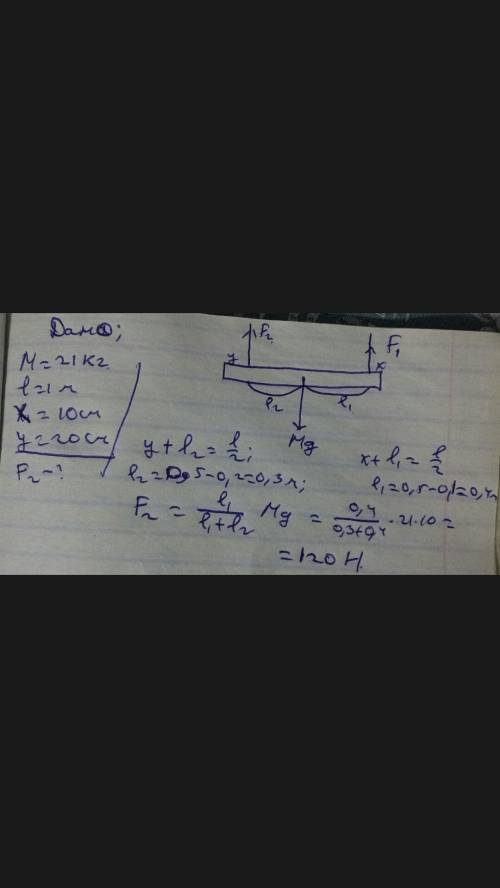 Дано;
M = 21 кг
l = 1 м
x = 10 см
y = 20 см
F₂ - ?
F₂
F₁
y
x
l₂
l₁
Mg
y + l₂ = l/2;
x + l₁ = l/2
l₂ = 0,5 - 0,2 = 0,3 м;
l₁ = 0,5 - 0,1 = 0,4 м
F₂ = l₁/(l₁ + l₂) Mg = 0,4/(0,3+0,4) · 21·10 =
= 120 Н.